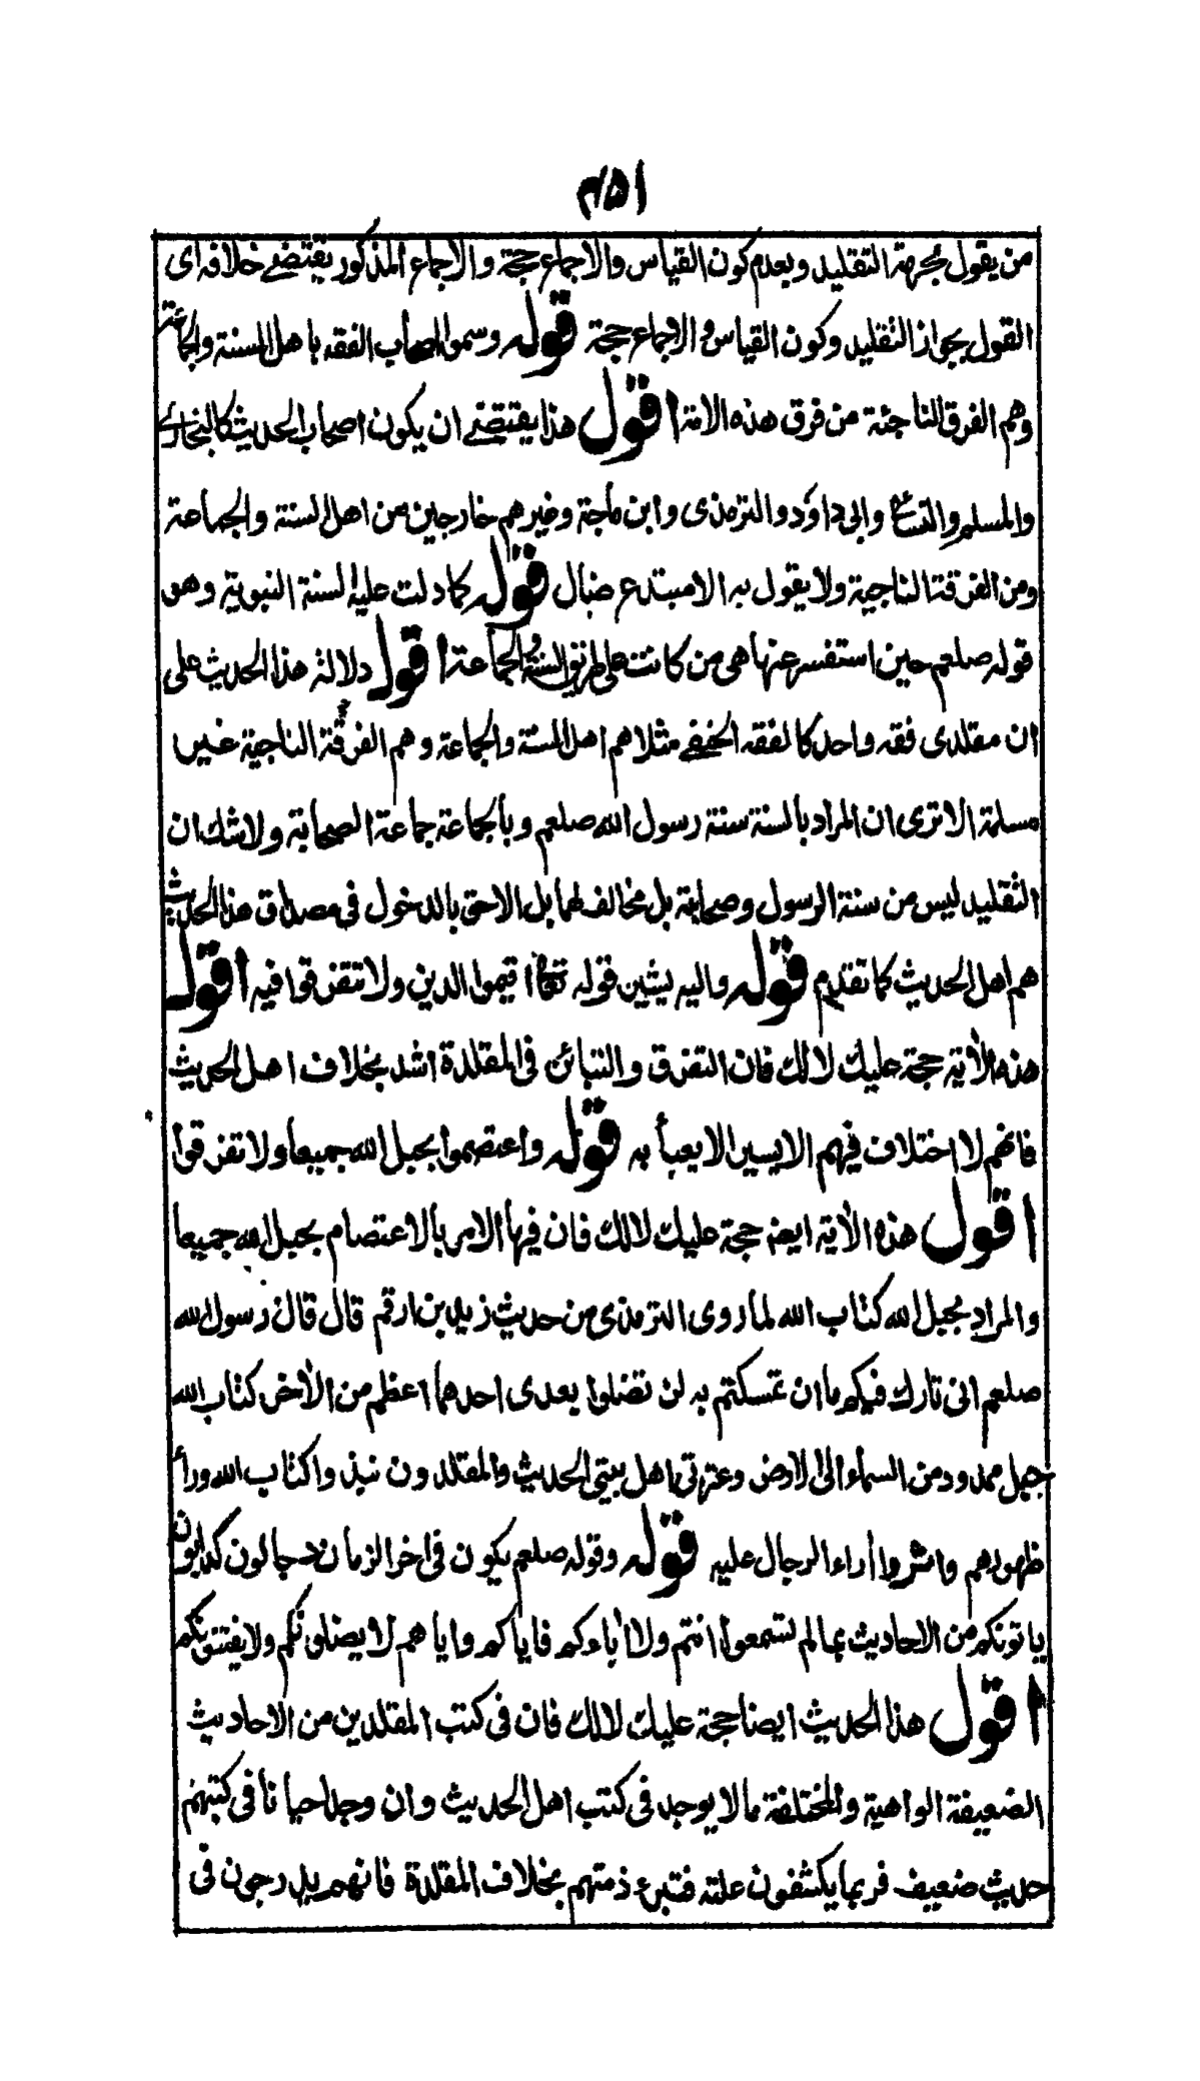 ۴۵۱
من يقول بحرمة التقليد وبعدم كون القياس والاجماع حجة والاجماع المذكور يقتضے خلافه اى
القول بجواز التقليد وكون القياس والاجماع حجة قوله وسموا اصحاب الفقه باهل السنة والجماعة
وهم الفرق الناجئة من فرق هذه الامة اقول هذا يقتضے ان يكون اصحاب الحديث كالبخارے
والمسلم والنسائى وابى داؤد والترمذى وابن ماجة وغيرهم خارجين من اهل السنة والجماعة
ومن الفرقة الناجية ولا يقول به الا مبتدع ضال قوله كما دلت عليه السنة النبوية وهو
قوله صلعم حين استفسر عنها هى من كانت على طريق السنة والجماعة اقول دلالة هذا الحديث على
ان مقلدى فقه واحد كالفقه الحنفے مثلا هم اهل السنة والجماعة وهم الفرقة الناجية غير
مسلمة الا ترى ان المراد بالسنة سنة رسول الله صلعم وبالجماعة جماعة الصحابة ولا شك ان
التقليد ليس من سنة الرسول وصحابة بل مخالف لهما بل الاحق بالدخول فى مصداق هذا الحديث
هم اهل الحديث كما تقدم قوله واليه يشير قوله تعالى اقيموا الدين ولا تتفرقوا فيه اقول
هذه الآية حجة عليك لا لك فان التفرق والتبائن فى المقلدة اشد بخلاف اهل الحديث
فانهم لا اختلاف فيهم الا يسيرا لا يعبأ به قوله واعتصموا بحبل الله جميعا ولا تفرقوا
اقول هذه الآية ايضا حجة عليك لا لك فان فيها الامر بالاعتصام بحبل الله جميعا
والمراد بحبل الله كتاب الله لما روى الترمذى من حديث زيد بن ارقم قال قال رسول الله
صلعم انى تارك فيكم ما ان تمسكتم به لن تضلوا بعدى احدهما اعظم من الآخر كتاب الله
حبل ممدود من السماء الى الارض وعترتى اهل بيتى الحديث والمقلدون نبذوا كتاب الله وراء
ظهورهم واٰثروا أراء الرجال عليه قوله وقوله صلعم يكون فى اخر الزمان دجالون كذابون
ياتونكم من الاحاديث بما لم تسمعوا انتم ولا اٰباءكم فاياكم واياهم لا يضلونكم ولا يفتنونكم
اقول هذا الحديث ايضا حجة عليك لا لك فان فى كتب المقلدين من الاحاديث
الضعيفة الواهية والمختلفة ما لا يوجد فى كتب اهل الحديث وان وجد احيانا فى كتبهم
حديث ضعيف فربما يكشفون علته فتبرء ذمتهم بخلاف المقلدة فانهم يدرجون فى